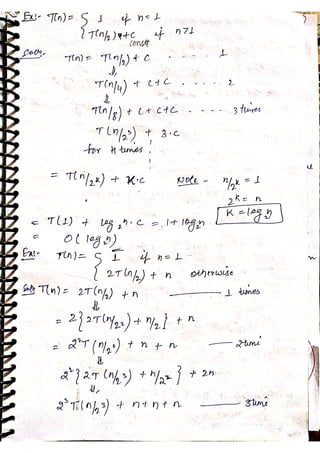 Ex:- T(n) = { 1 if n=1
{ T(n/2)+C if n>1
const
Soln. T(n) = T(n/2) + C - - - - 1
⇓
T(n/4) + C+C - - - - 2
⇓
T(n/8) + C+C+C - - - - 3 times
T(n/2³) + 3.C
for k times
= T(n/2k) + K.C Note - n/2k = 1
2k = n
K = log n
= T(1) + log₂n.C = 1+ log₂n
= O(log₂n)
Ex:- T(n) = { 1 if n=1
{ 2T(n/2) + n otherwise
Soln T(n) = 2T(n/2) + n —— 1 times
⇓
= 2{2T(n/2²) + n/2} + n
= 2²T(n/2²) + n + n —— 2 time
⇓
2²{2T(n/2³) + n/2²} + 2n
⇓
2³T(n/2³) + n+n+n —— 3 time